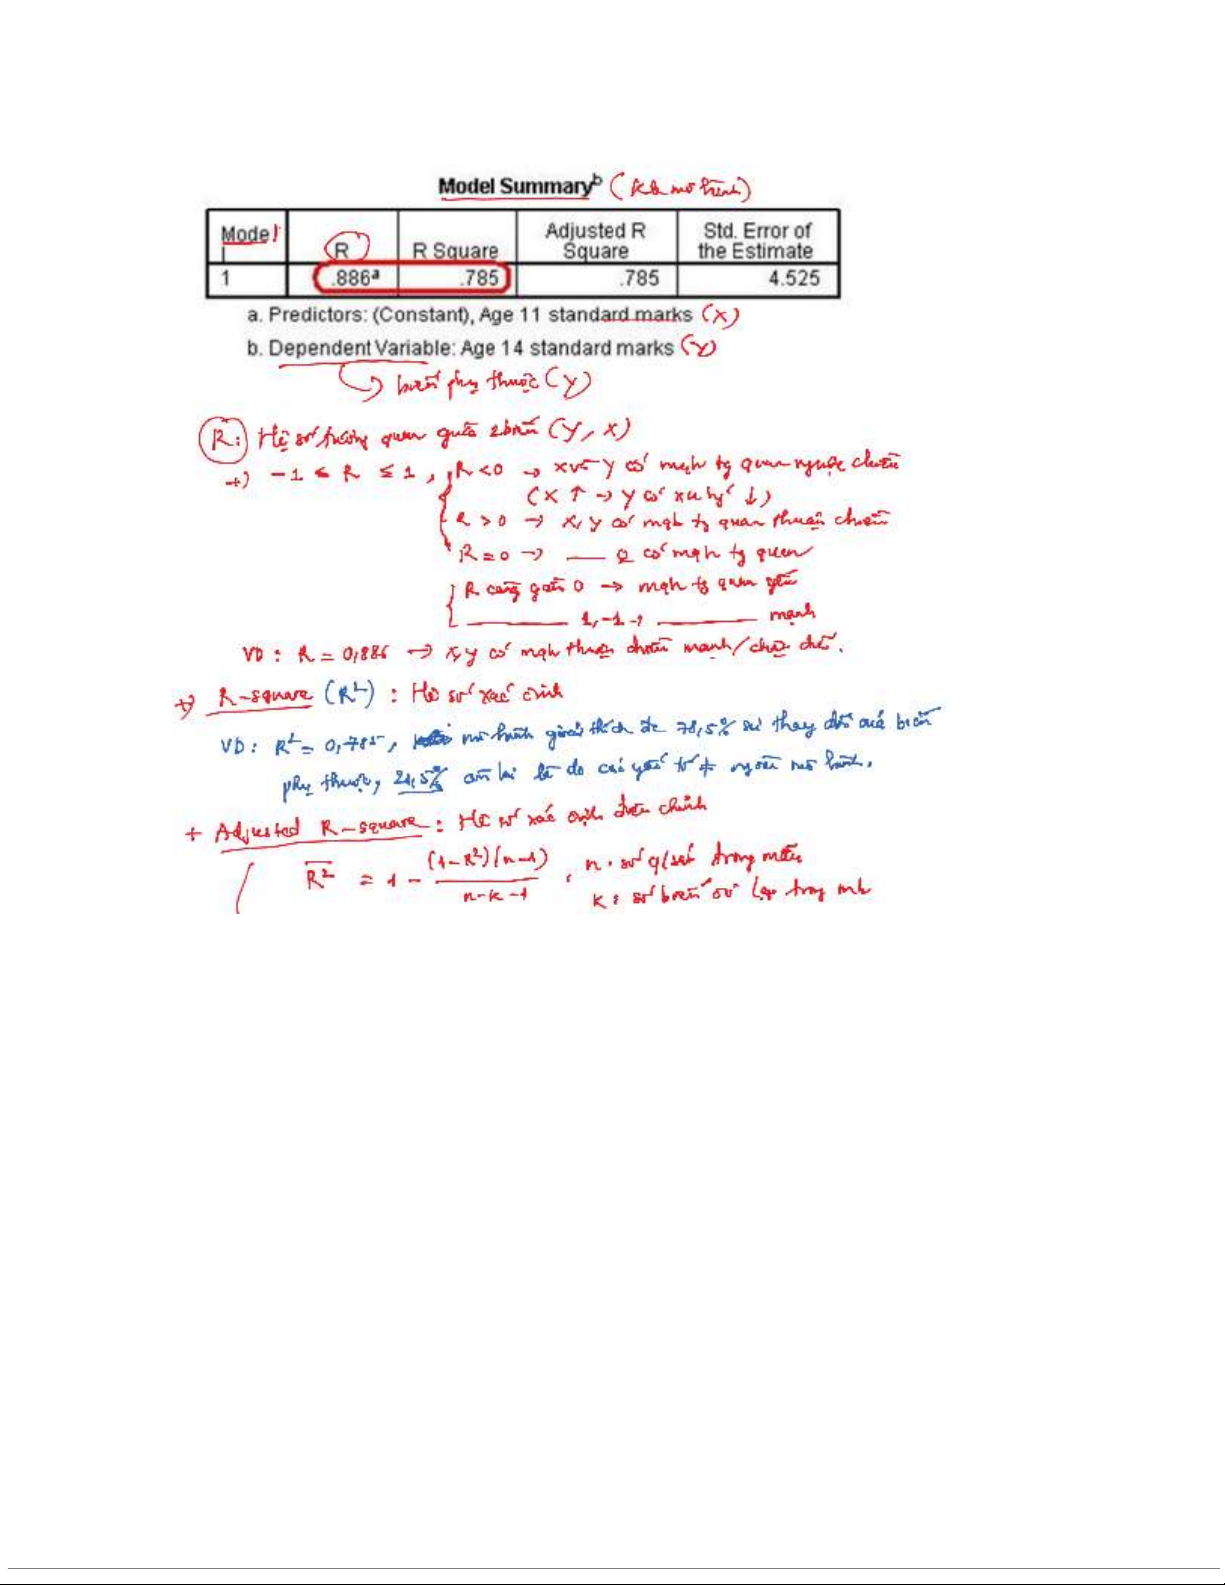 Model Summaryb (KQ mô hình)
Model R R Square Adjusted R Square Std. Error of the Estimate
1 .886a .785 .785 4.525
a. Predictors: (Constant), Age 11 standard marks (X)
b. Dependent Variable: Age 14 standard marks (Y)
biến phụ thuộc (Y)
R: Hệ số tương quan giữa 2 biến (Y, X)
+) -1 ≤ R ≤ 1, R<0 → X và Y có mqh tg quan ngược chiều
(X ↑ → Y có xu hg ↓)
R > 0 → X, Y có mqh tg quan thuận chiều
R = 0 → __ có mqh tg quan
R càng gần 0 → mqh tg quan yếu
____ 1, -1 → ____ mạnh
VD: R = 0,886 → X, Y có mqh thuận chiều mạnh/chặt chẽ.
+) R-square (R²): Hệ số xác định
VD: R² = 0,785, mô hình giải thích đc 78,5% sự thay đổi của biến
phụ thuộc, 21,5% còn lại là do các yếu tố ≠ ngoài mô hình.
+ Adjusted R-square: Hệ số xác định điều chỉnh
R̄² = 1 - (1-R²)(n-1) / n-k-1, n: số q/sát trong mẫu
k: số biến độc lập trong mh